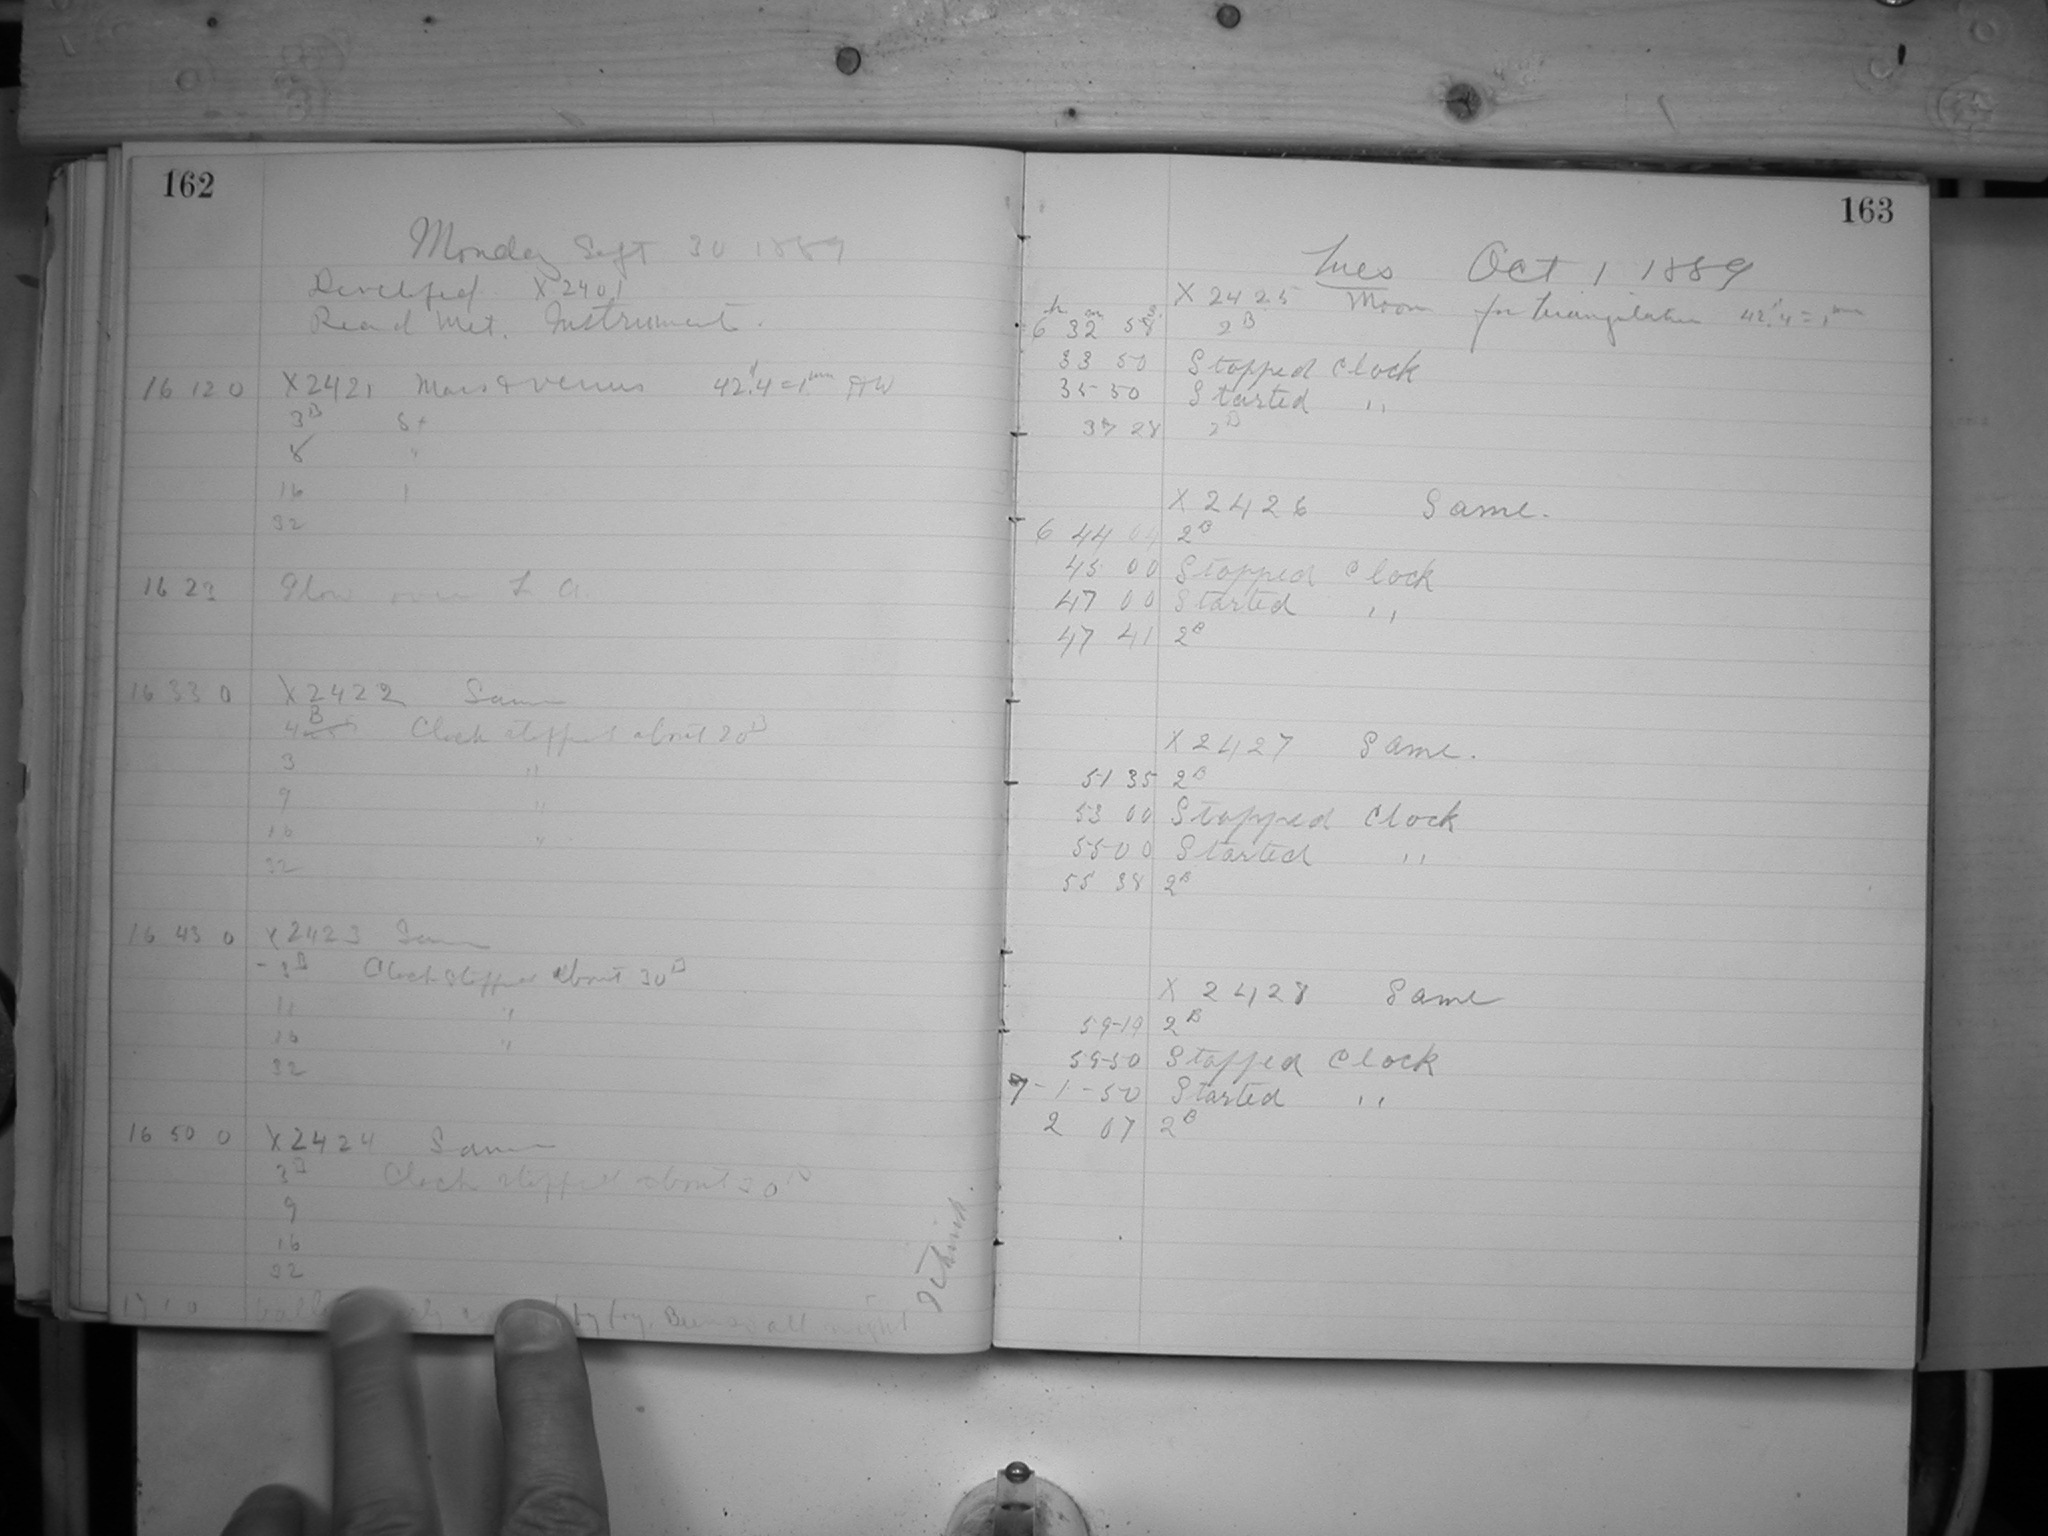 162
Monday Sept 30 1889
Developed X 2401
Read Met. Instruments.
16 12 0 X2421 Mars & Venus 42."4 = 1mm
3B St
8 "
16
32
16 23 Glow over L. A.
16 33 0 X2422 Same
4B Clock stopped about 20B
3 "
9 "
16 "
32
16 43 0 X2423 Same
3B Clock stopped about 30B
11 "
16 "
32
16 50 0 X2424 Same
3B Clock stopped about
9
16
32
17 1 0 by fog. all night
I think.
163
Tues Oct 1 1889
X 2425 Moon for triangulation 42."4 = 1mm
h m s
6 32 58 2B
33 50 Stopped Clock
35 50 Started "
37 28 2B
X 2426 Same.
6 44 04 2B
45 00 Stopped Clock
47 00 Started "
47 41 2B
X 2427 Same.
51 35 2B
53 00 Stopped Clock
55 00 Started "
55 38 2B
X 2428 Same
59-19 2B
59-50 Stopped Clock
7-1-50 Started "
2 07 2B